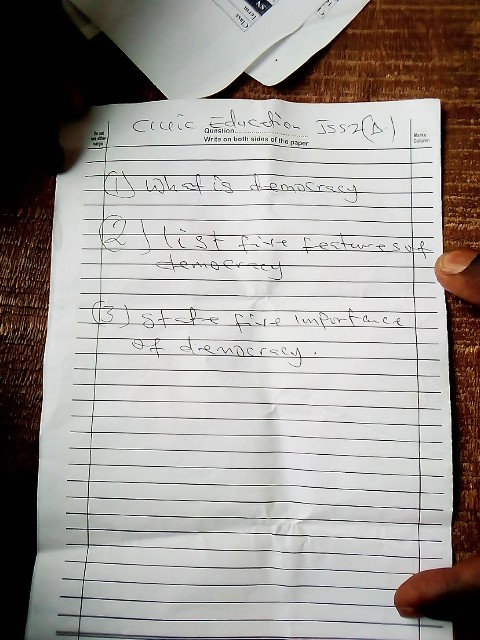 Civic Education JSS2(A)
Question
Write on both sides of the paper
Do not
use either
margin
Marks
Column
(1) What is democracy
(2) list five features of
democracy
(3) state five importance
of democracy.